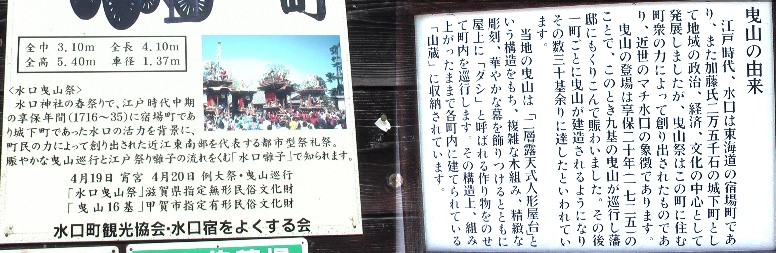 町
全巾 3.10m 全長 4.10m
全高 5.40m 車径 1.37m
<水口曳山祭>
水口神社の春祭りで、江戸時代中期
の享保年間(1716〜35)に宿場町であ
り城下町であった水口の活力を背景に、
町民の力によって創り出された近江東南部を代表する都市型祭礼祭。
賑やかな曳山巡行と江戸祭り囃子の流れをくむ「水口囃子」で知られます。
4月19日 宵宮 4月20日 例大祭・曳山巡行
「水口曳山祭」滋賀県指定無形民俗文化財
「曳山16基」甲賀市指定有形民俗文化財
水口町観光協会・水口宿をよくする会
曳山の由来
江戸時代、水口は東海道の宿場町であ
り、また加藤氏二万五千石の城下町とし
て地域の政治、経済、文化の中心として
発展しましたが、曳山祭はこの町に住む
町衆の力によって創り出されたものであ
り、近世のマチ水口の象徴であります。
曳山の登場は享保二十年(一七三五)の
ことで、このとき九基の曳山が巡行し藩
邸にもくりこんで賑わいました。その後
一町ごとに曳山が建造されるようになり
その数三十基余りに達したといわれてい
ます。
当地の曳山は「二層露天式人形屋台」と
いう構造をもち、複雑な木組み、精緻な
彫刻、華やかな幕を飾りつけるとともに
屋上に「ダシ」と呼ばれる作り物をのせ
て町内を巡行します。その構造上、組み
上がったままで各町内に建てられている
「山蔵」に収納されています。